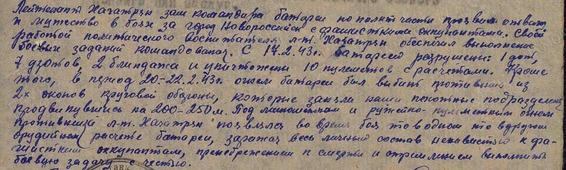 Лейтенант Хачатрян зам. командира батареи по полит части проявил отвагу
и мужество в боях за город Новороссийск с фашистскими оккупантами. Своей
работой политического воспитателя л-т. Хачатрян обеспечил выполнение
боевых заданий командования. С 17.2.43г. батареей разрушены 1 дот,
7 дзотов, 2 блиндажа и уничтожены 10 пулеметов с расчетами. Кроме
того, в период 20-22.2.43г. огнем батареи был выбит противник из
2х окопов круговой обороны, которые заняли наши пехотные подразделения
продвинувшись на 200-250м. Под минометным и ружейно-пулеметным огнем
противника л-т. Хачатрян появлялся во время боя то в одном то в другом
орудийном расчете батареи, заражая весь личный состав ненавистью к фа-
шистским оккупантам, пренебрежением к смерти и стремлением выполнить
боевую задачу с честью.